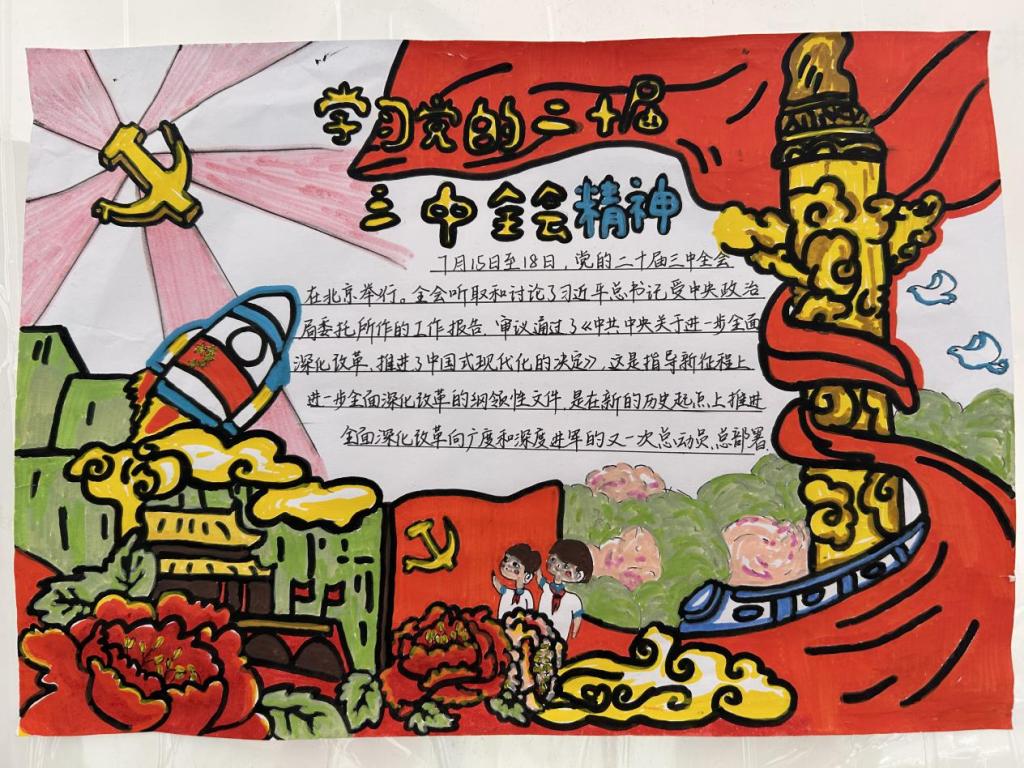 学习党的二十届
三中全会精神
7月15日至18日，党的二十届三中全会
在北京举行。全会听取和讨论了习近平总书记受中央政治
局委托所作的工作报告，审议通过了《中共中央关于进一步全面
深化改革、推进了中国式现代化的决定》，这是指导新征程上
进一步全面深化改革的纲领性文件，是在新的历史起点上推进
全面深化改革向广度和深度进军的又一次总动员、总部署。